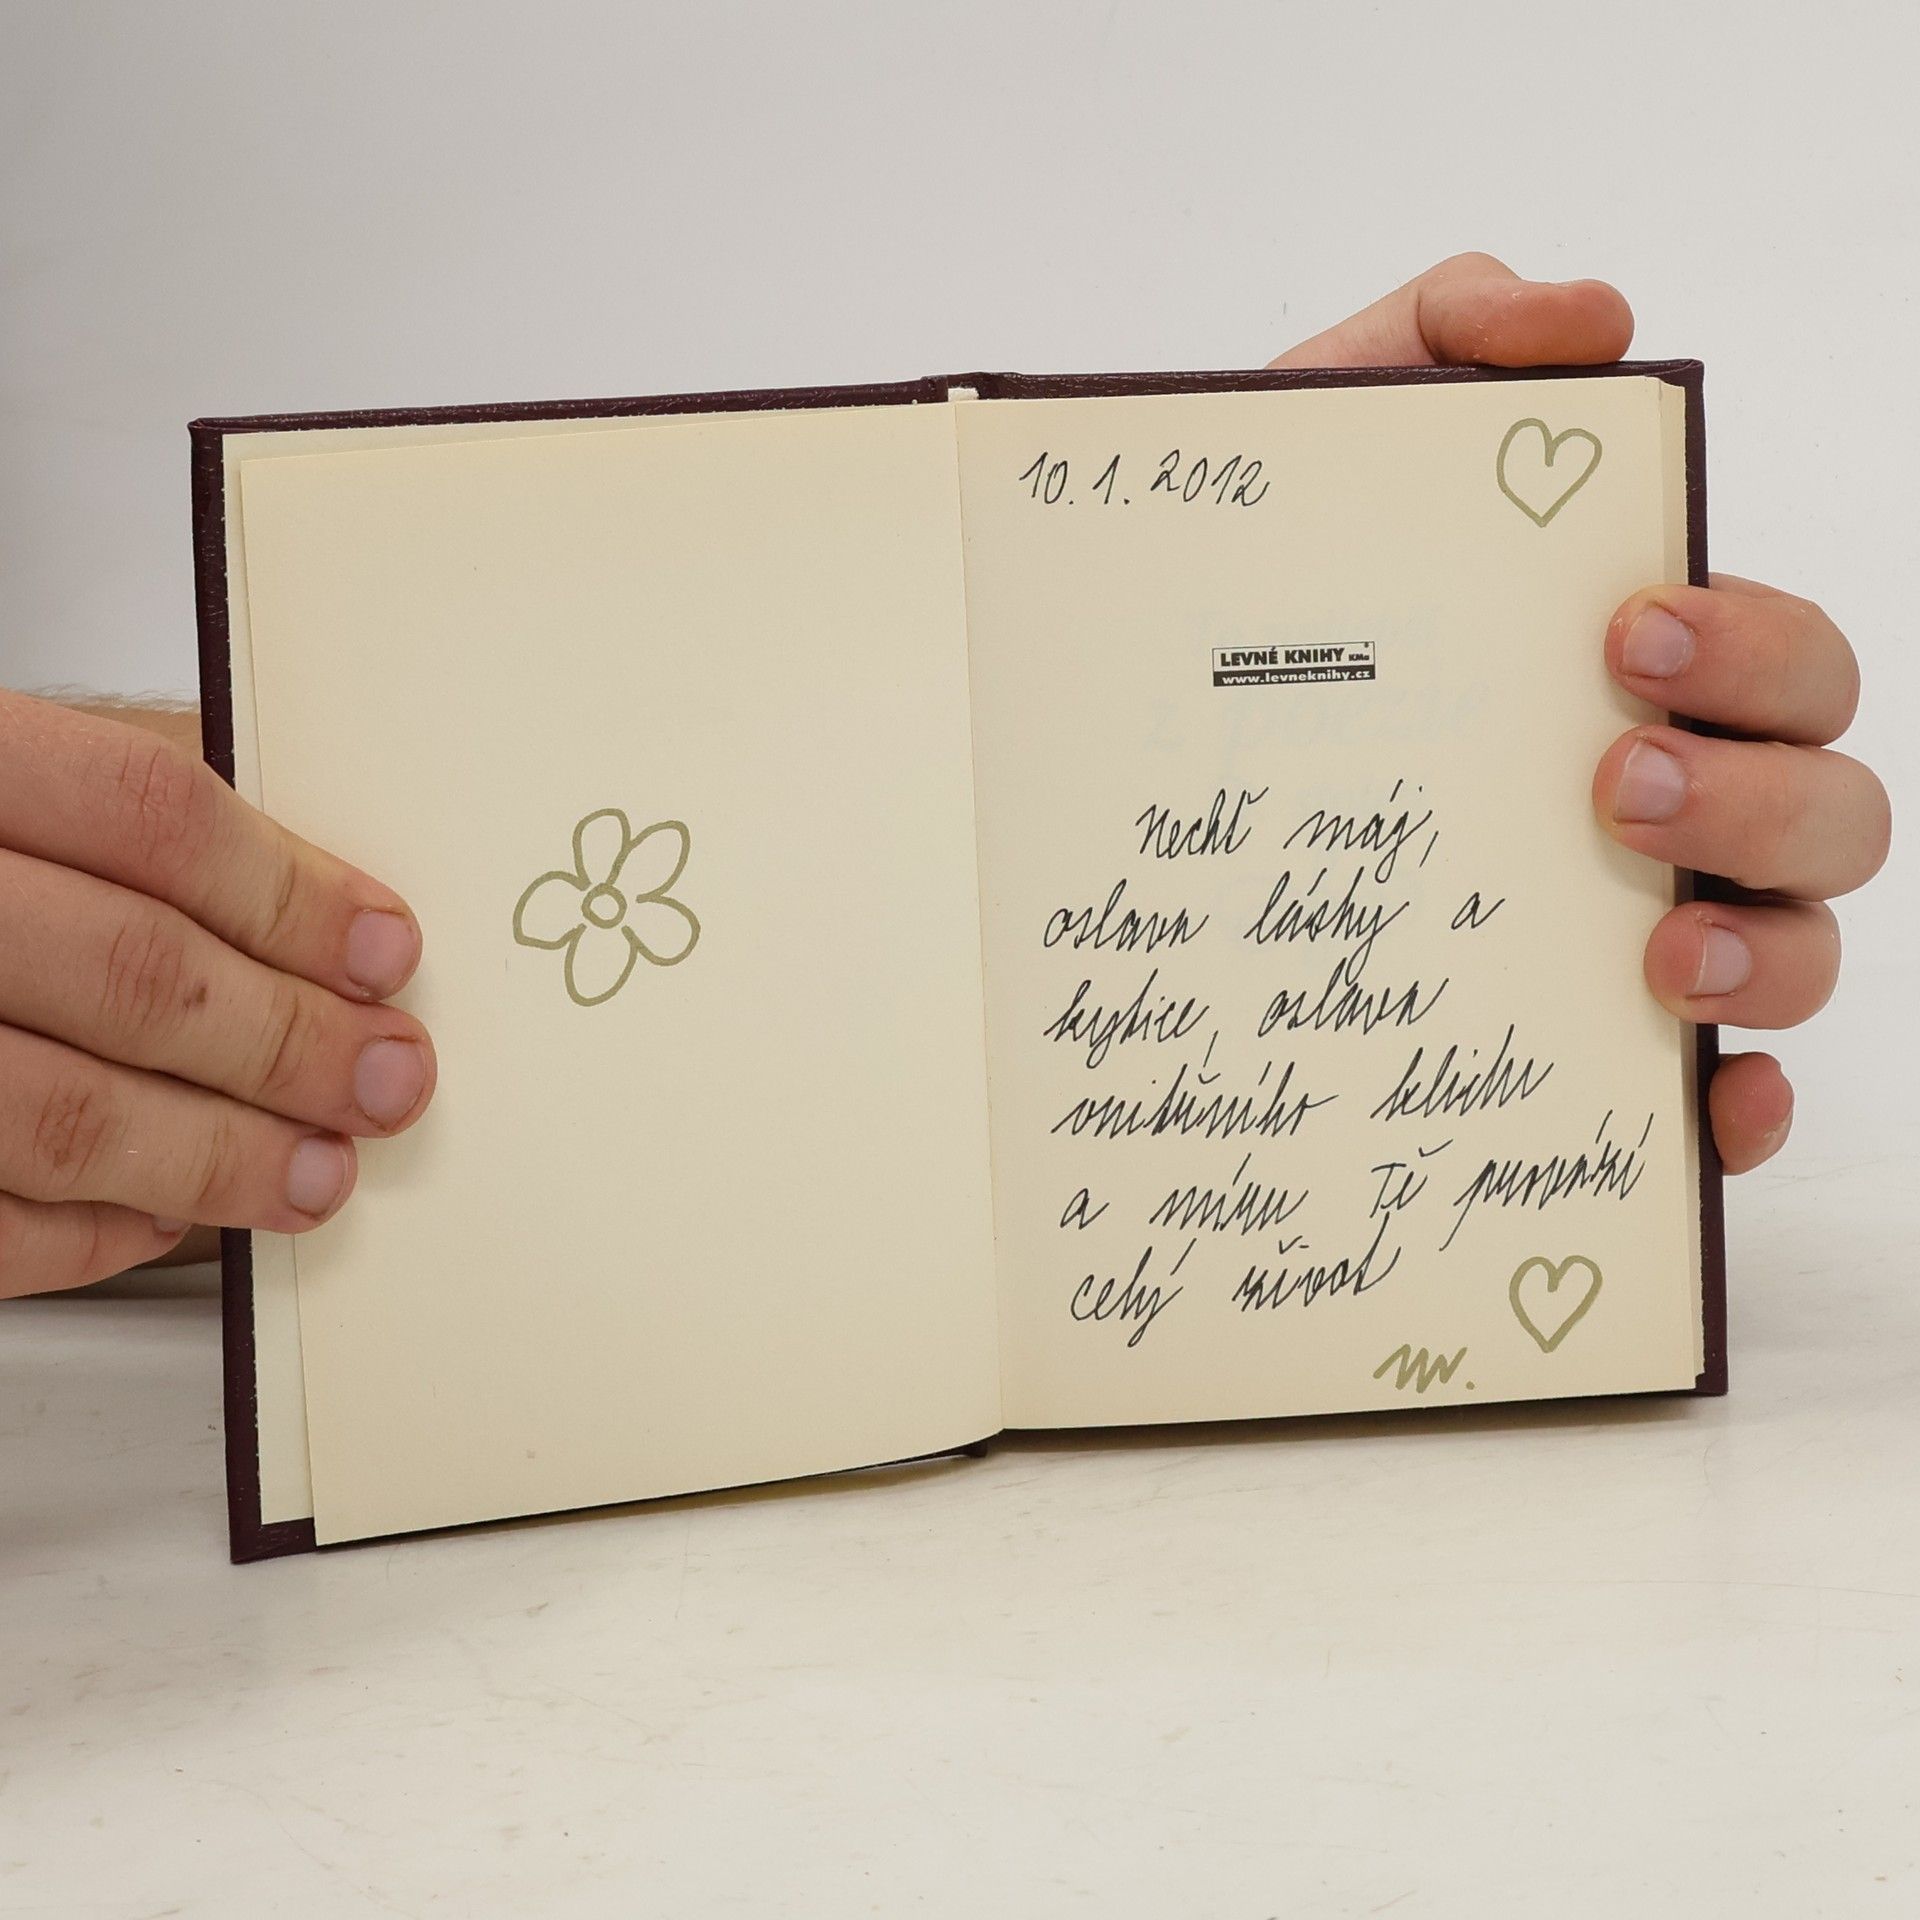 10. 1. 2012
LEVNÉ KNIHY KMa
www.levneknihy.cz
Nechť máj,
oslava lásky a
kytice, oslava
vnitřního klidu
a míru Tě provází
celý život